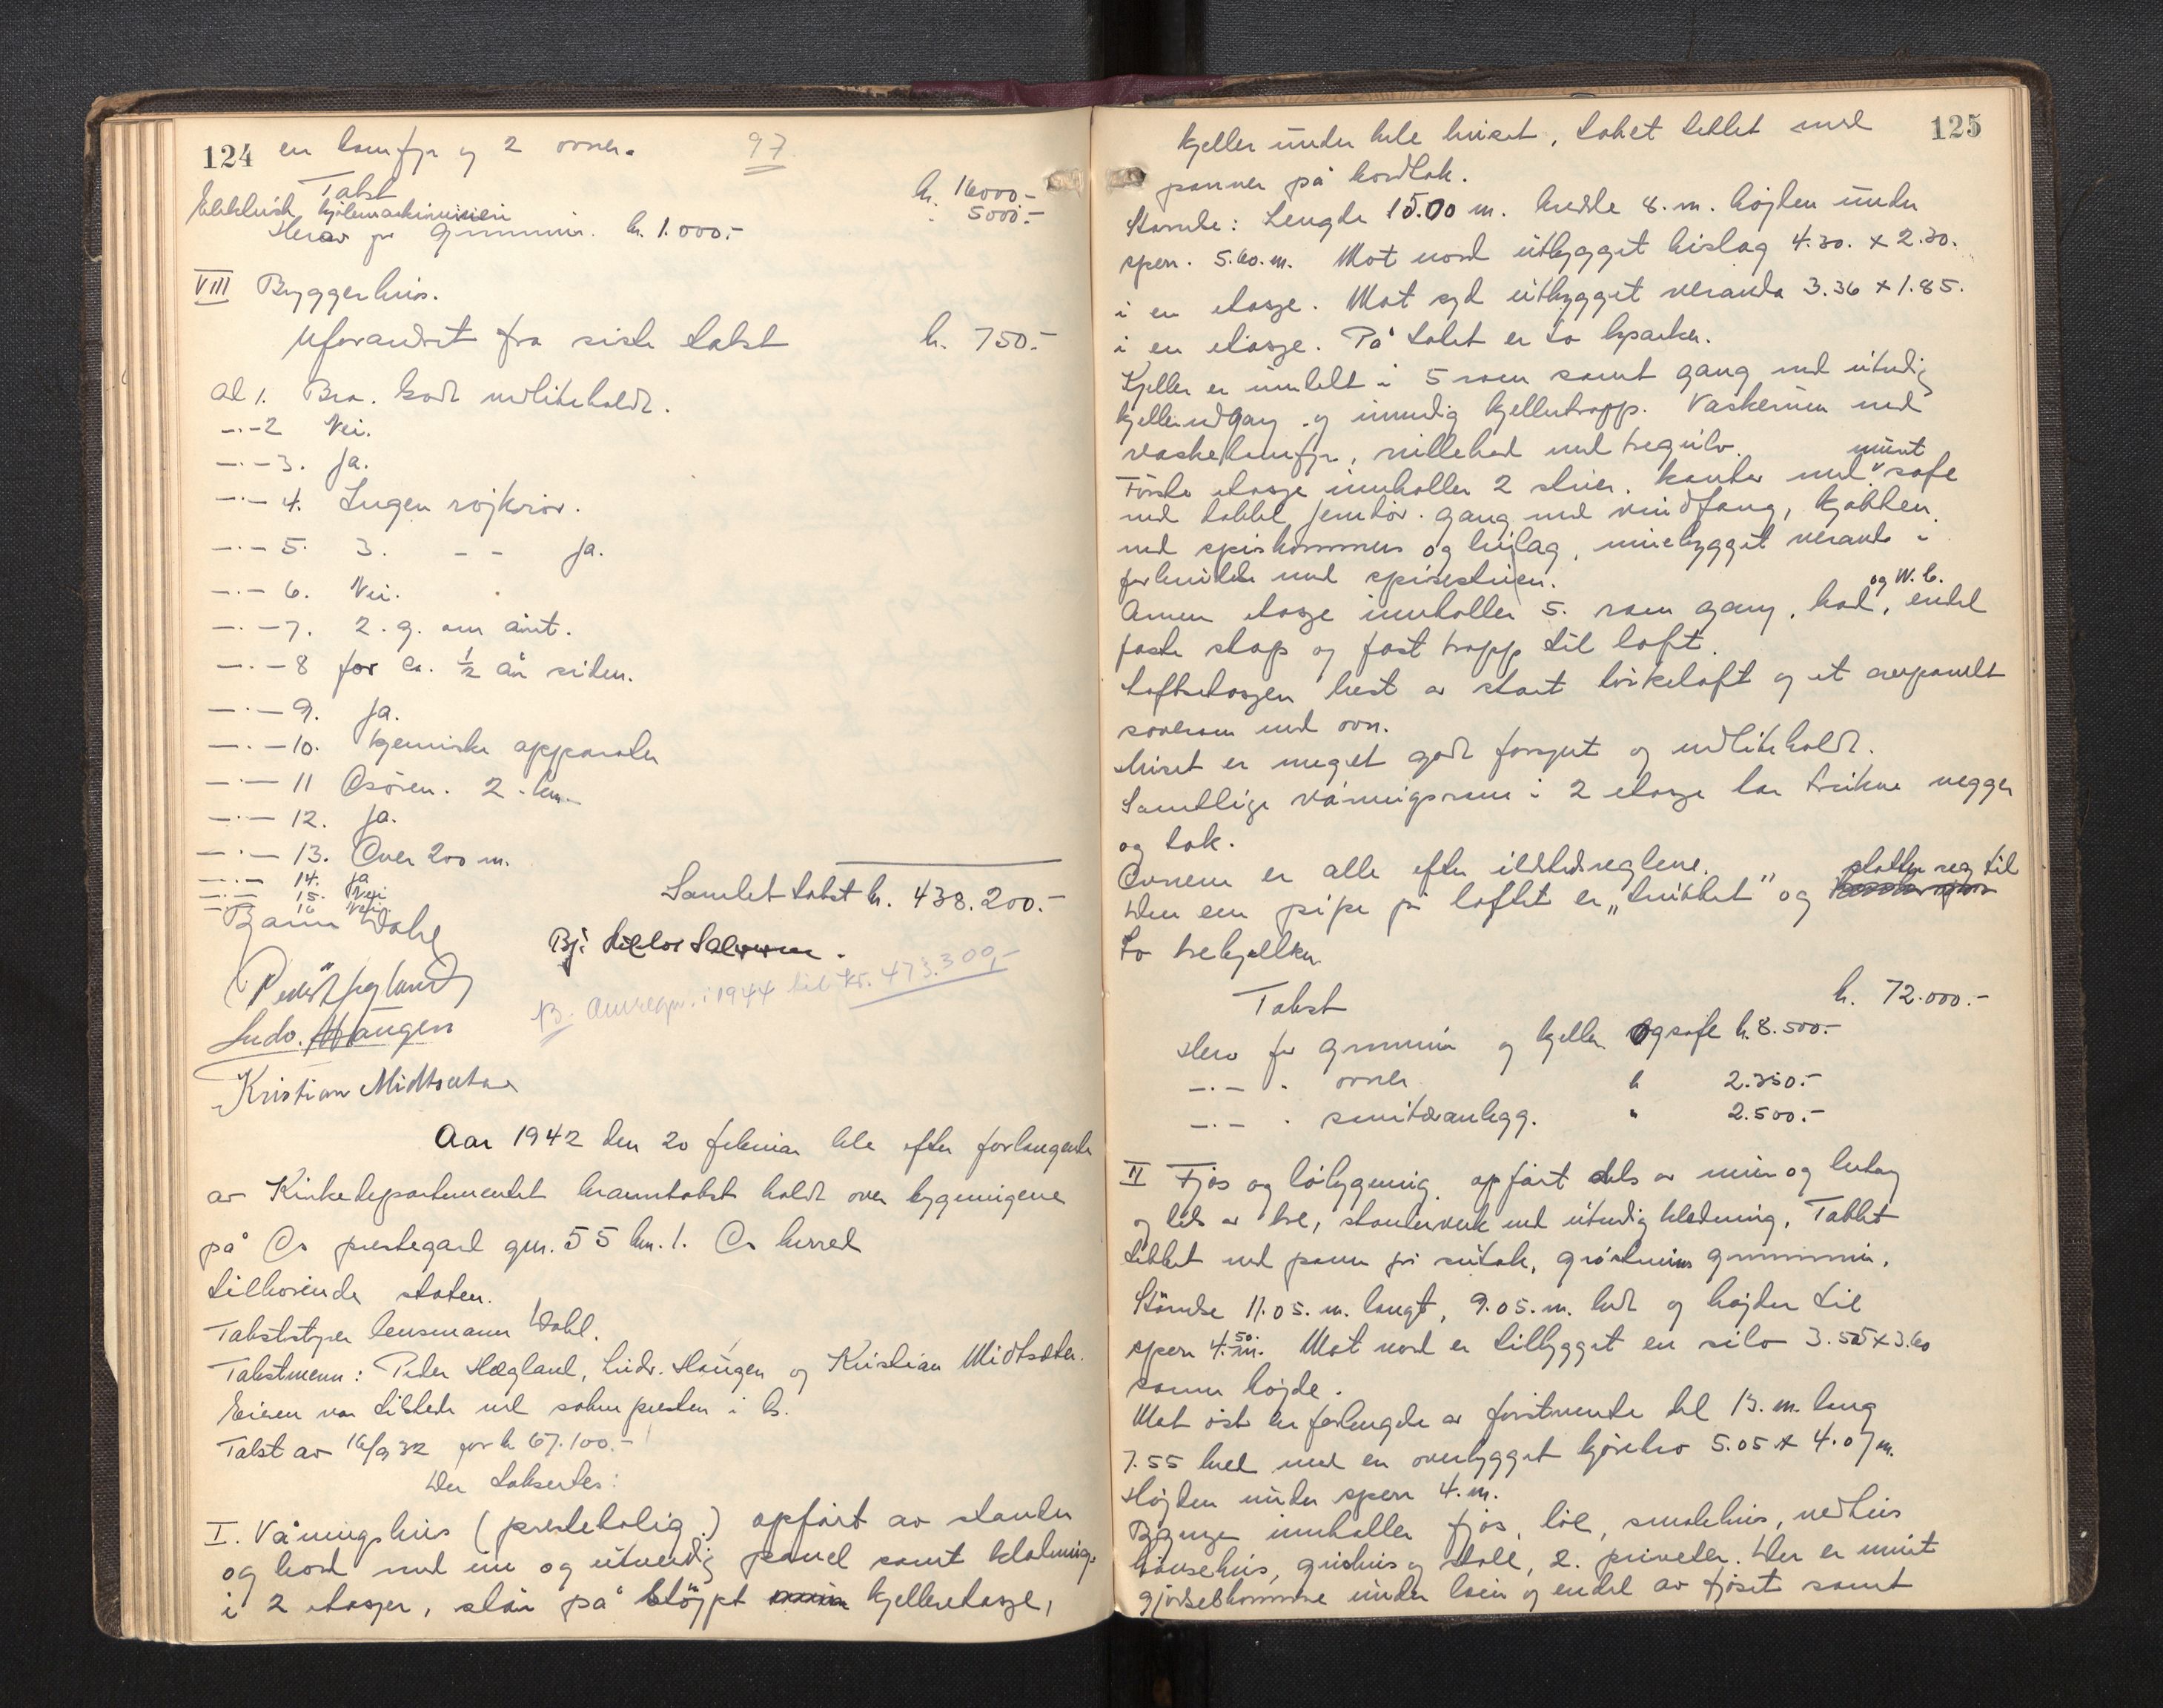 124 en komfyr og 2 ovner. 97
Takst kr. 16000.-
Elektrisk kjølemaskinrieri - 5000.-
Herav for grunnmur. kr. 1.000.-
VIII Bryggerhus.
Uforandret fra siste takst kr. 750.-
ad 1. Bra. Godt vedlikeholdt.
-.-2 Nei.
-.-3. Ja.
-.-4. Ingen røjkrør.
-.-5. 3. - - Ja.
-.-6. Nei.
-.-7. 2. g. om året.
-.-8 for ca. 1/2 år siden.
-.-9. Ja.
-.-10. kjemiske apparater
-.-11 Osøren. 2. km.
-.-12. Ja.
-.-13. Over 200 m.
-.-14. Ja
-.-15. Nei
-.-16 Nei
Samlet takst kr. 438.200.-
Bjarne Dahl
Peder Hegland
Ludv. Haugen
B. i 1944 til kr. 473.300,-
Kristian Midtsæter
Aar 1942 den 20 februar ble efter forlangende
av Kirkedepartementet branntakst holdt over bygningene
på Os prestegard gnr. 55 bnr. 1. Os herred
tilhørende staten.
Takstbestyrer lensmann Dahl.
Takstmenn: Peder Hegland, Ludv. Haugen og Kristian Midtsæter.
Eieren var tilstede ved soknepresten i Os.
Takst av 16/9 32 for kr 67.100.-
Der taksertes:
I. Våningshus (prestebolig.) opført av stender
og bord med inn og utvendig panel samt kledning.
i 2 etasjer, står på støypt kjelleretasje,
125
kjeller under hele huset, taket tekket med
panner på bordtak.
Størrelse: Lengde 15.00 m. bredde 8. m. højden under
sperr. 5.60. m. Mot nord utbygget bislag 4.30. x 2.30.
i en etasje. Mot syd utbygget veranda 3.36 x 1.85.
i en etasje. På taket er to kvister.
Kjeller er inndelt i 5 rom samt gang med utvendig
kjellernedgang og innvendig kjellertrapp. Vaskerum med
vaskekomfyr, rullebod med tregulv.
Første etasje inneholder 2 stuer. kontor med muret safe
med dobbel jerndør. gang med vindfang, kjøkken
med spiskammers og bislag, innebygget veranda i
forbindelse med spisestuen.
Annen etasje inneholder 5. rom gang, bad og W.C., endel
faste skap og fast trapp til loft.
Loftsetasjen best. av stort tørkeloft og et avpanelt
soverom med ovn.
Huset er meget godt forsynt og vedlikeholdt.
Samtlige våningsrum i 2 etasje har trukne vegger
og tak.
Ovnene er alle efter ildstedreglene.
Den ene pipe på loftet er „trukket” og støtter seg til
to trebjelker
Takst kr. 72.000.-
Herav for grunnmur og kjeller og safe kr. 8.500.-
-.- - ovner kr 2.350.-
-.- - sanitæranlegg. " 2.500.-
II Fjøs og løbygning. opført dels av mur og betong
og dels av tre, stenderverk med utvendig kledning, Taket
tekket med panner på sutak, gråsteins grunnmur.
Størrelse 11.05. m. langt, 9.05. m. bredt og højden til
sperr 4.50 m. Mot nord er tilbygget en silo 3.50 x 3.60
samme højde.
Mot øst er forlengelse av forstnevnte del 13. m. lang
7.55 bred med en overbygget kjørebro 5.05 x 4.07 m.
Højden under sperr 4. m.
Bygningen inneholder fjøs, løe, smalehus, vedhus
hønsehus, grishus og stall, 2. priveter. Der er muret
gjødselskummer under løen og endel av fjøset samt